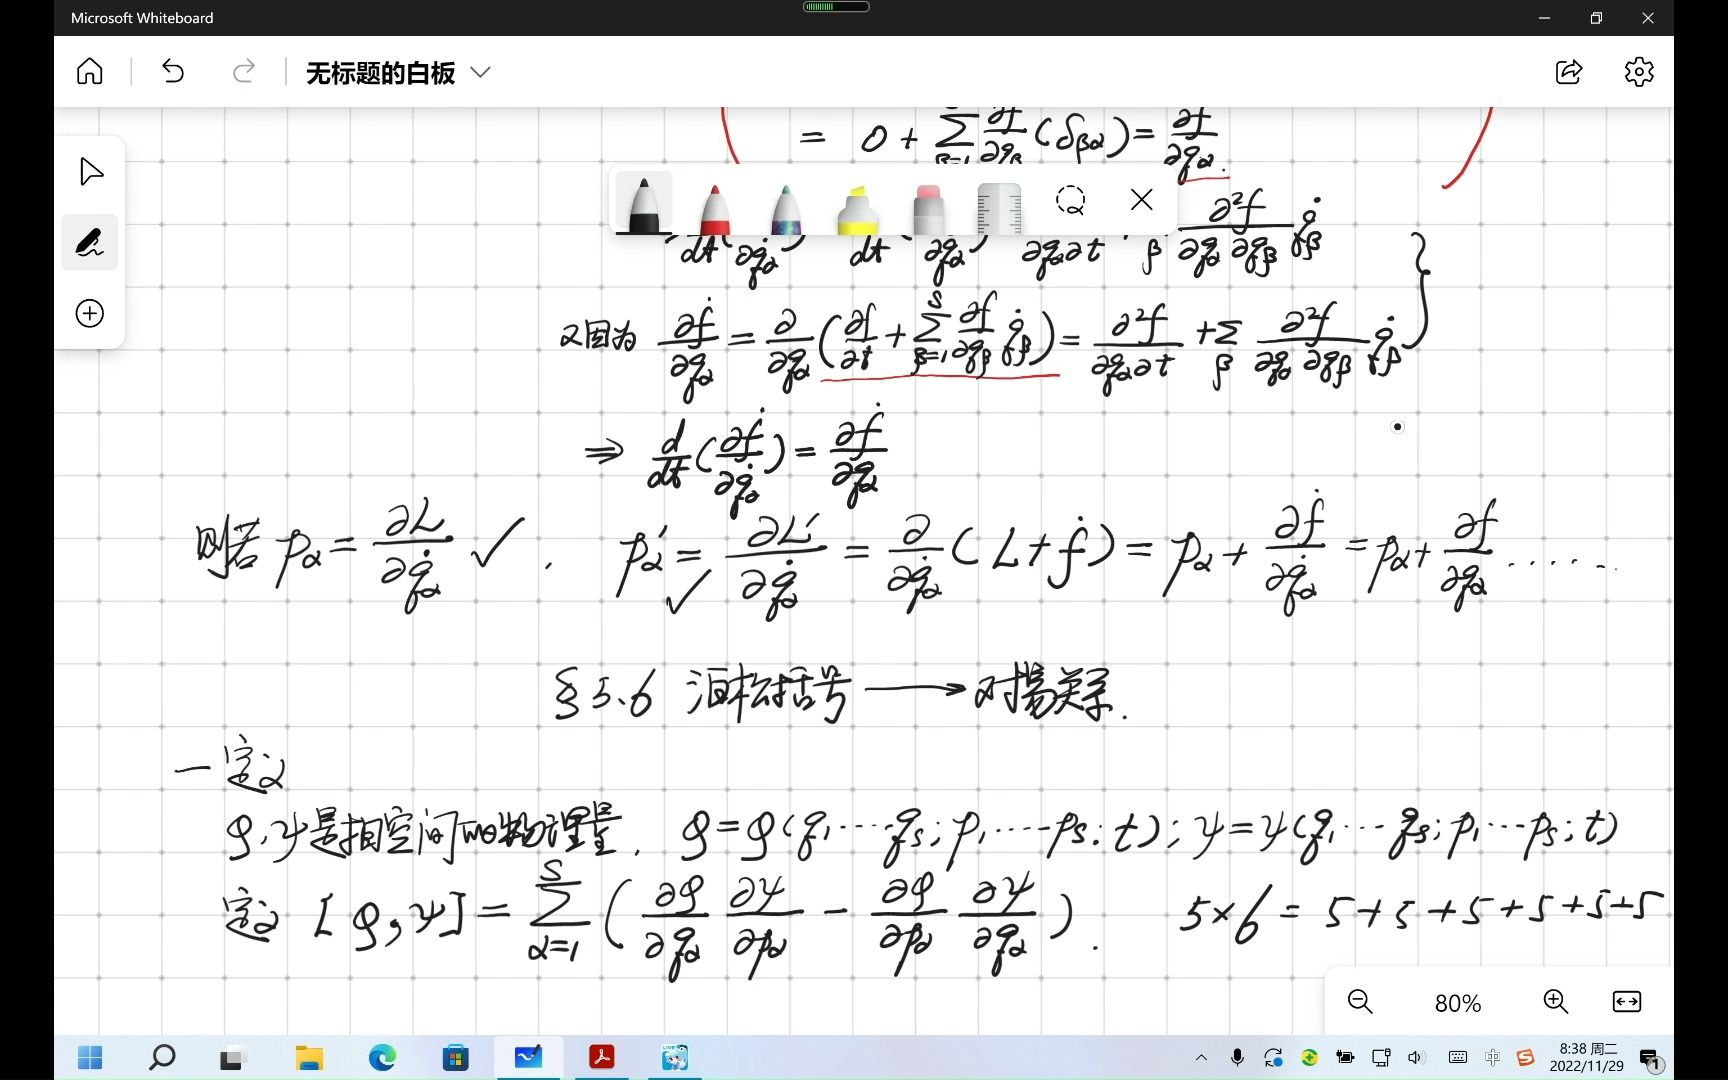 Microsoft Whiteboard
无标题的白板
= 0 + Σ_{β=1} ∂f/∂q_β (δ_βα) = ∂f/∂q_α.
d/dt(∂ḟ/∂q̇_α) d/dt(∂f/∂q_α) ∂q_α∂t β ∂²f/∂q_α∂q_β q̇_β
又因为 ∂ḟ/∂q_α = ∂/∂q_α (∂f/∂t + Σ_{β=1}^{s} ∂f/∂q_β q̇_β) = ∂²f/∂q_α∂t + Σ_β ∂²f/∂q_α∂q_β q̇_β }
⇒ d/dt (∂ḟ/∂q̇_α) = ∂ḟ/∂q_α
则若 p_α = ∂L/∂q̇_α ✓ . p_α' = ∂L'/∂q̇_α = ∂/∂q̇_α (L + ḟ) = p_α + ∂ḟ/∂q̇_α = p_α + ∂f/∂q_α ......
✓
§5.6 泊松括号 → 对易关系.
一 定义
φ,ψ是相空间的物理量. φ=φ(q₁…q_s; p₁…p_s: t); ψ=ψ(q₁…q_s; p₁…p_s; t)
定义 [φ,ψ] = Σ_{α=1}^{s} (∂φ/∂q_α ∂ψ/∂p_α − ∂φ/∂p_α ∂ψ/∂q_α). 5×6 = 5+5+5+5+5+5
80%
8:38 周二
中 2022/11/29 1